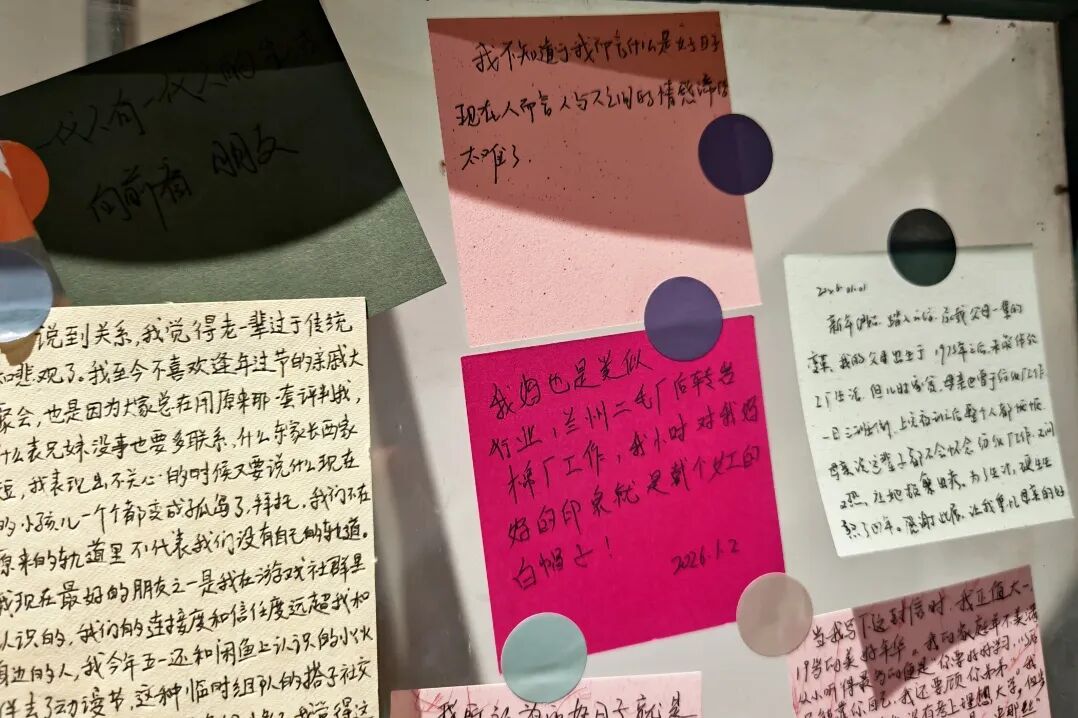 一代人有一代人的生活
向前看 朋友
我不知道于我而言什么是好日子
现在人而言人与人之间的情感
太难了.
说到关系,我觉得老一辈过于传统
和悲观了。我至今不喜欢逢年过节的亲戚大
家会,也是因为大家总在用原来那一套评判我,
什么表兄妹没事也要多联系,什么东家长西家
短,我表现出不关心的时候又要说什么现在
的小孩儿一个个都变成孤岛了,拜托,我们不在
原来的轨道里不代表我们没有自己的轨道。
我现在最好的朋友之一是我在游戏社群里
认识的,我们的连接度和信任度远超我和
身边的人,我今年五一还和闲鱼上认识的小伙
伴去了动漫节,这种临时组队的搭子社交
我妈也是类似
行业,兰州二毛厂后转台
棉厂工作,我小时对我妈
妈的印象就是戴个女工的
白帽子!
2026.1.2
2026.01.01
新年伊始
我的父母出生于1973年之后
工厂生活
一日三班倒,上完夜班之后整个人都
母亲说这辈子都不会怀念纺织厂工作,又闷
又热
了四年。感谢此展,让我看见母亲的
当我写下这封信时,我正值大一
19岁的美好年华。我的家庭并不美满
从小听得最多的便是“你要好好学习,以后
只能靠你自己,我还要顾你弟弟”。我
没有考上理想大学,但
我所认为的好日子就是